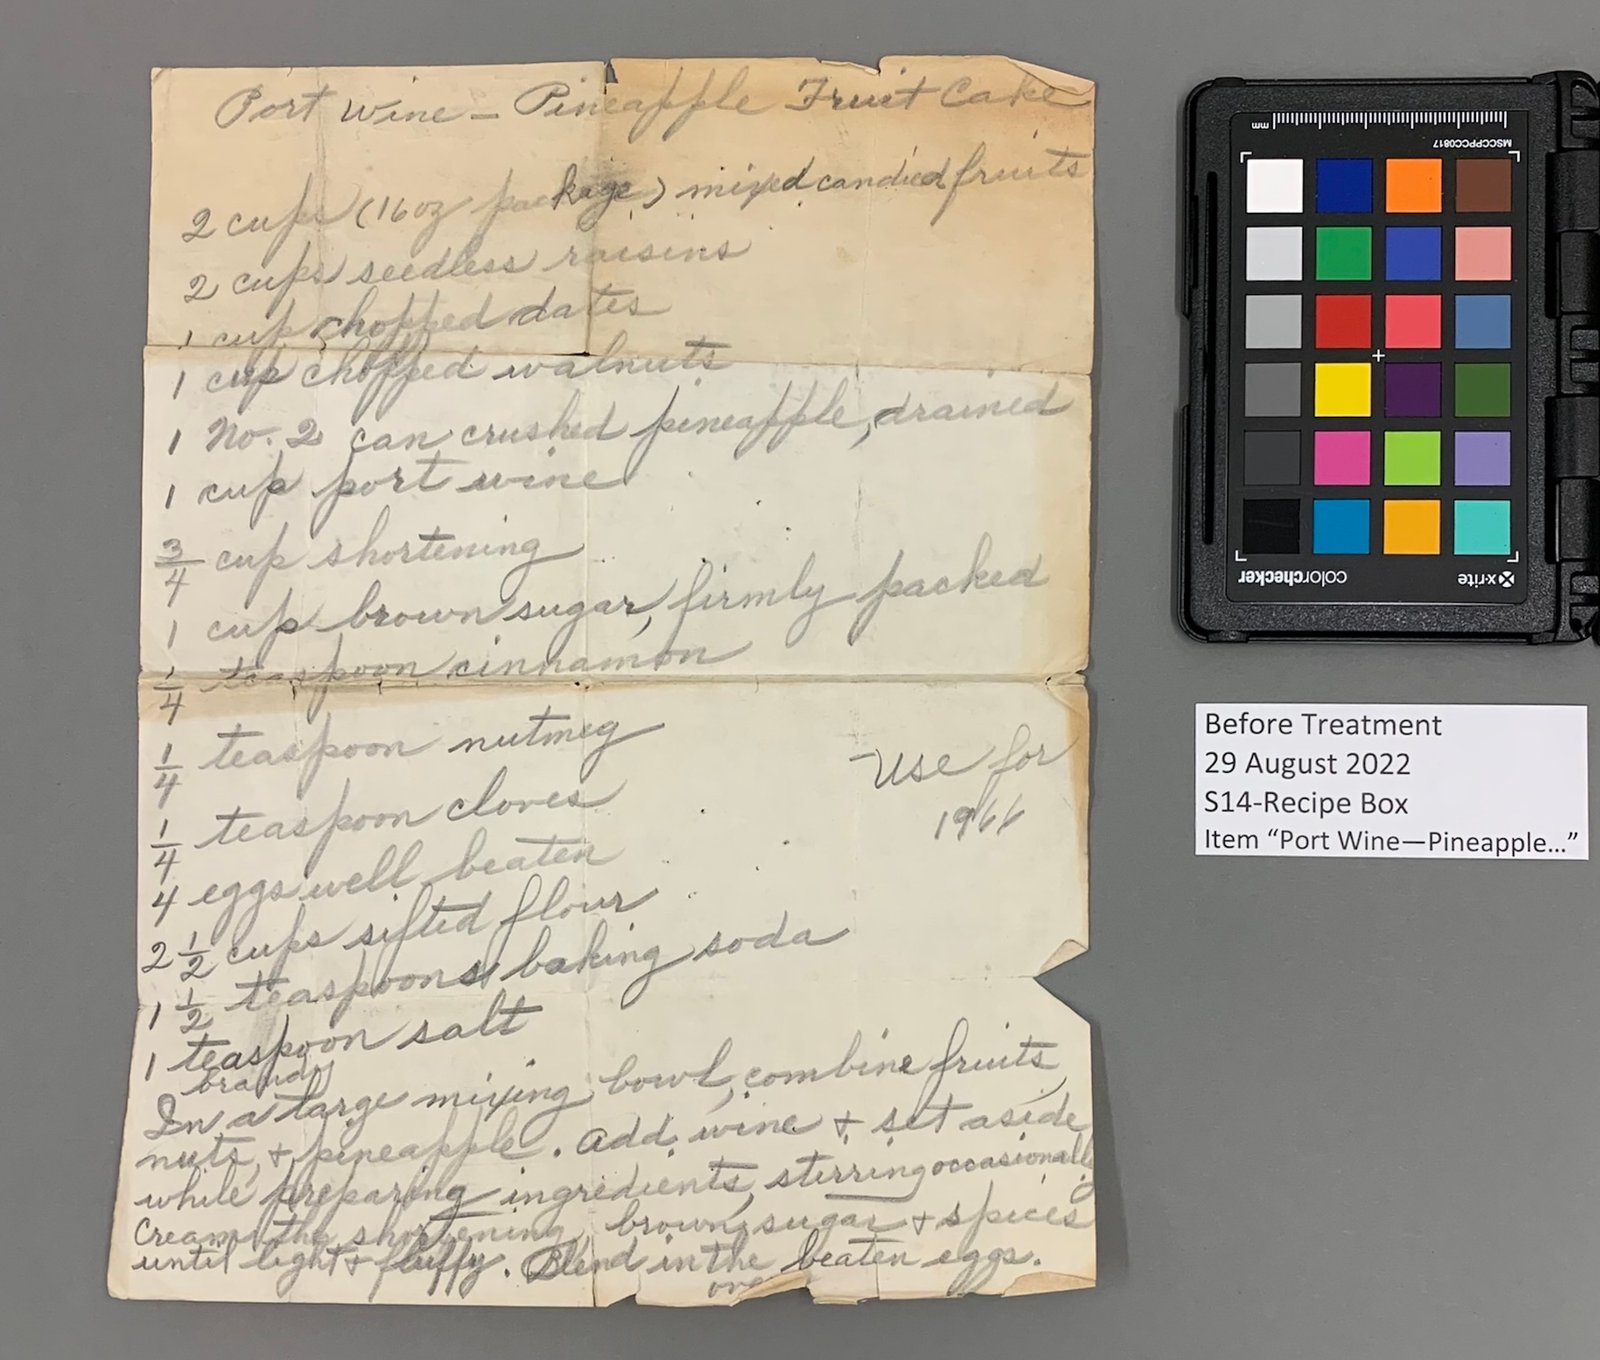 Port Wine – Pineapple Fruit Cake
2 cups (16 oz package) mixed candied fruits
2 cups seedless raisins
1 cup chopped dates
1 cup chopped walnuts
1 No. 2 can crushed pineapple, drained
1 cup port wine
3/4 cup shortening
1 cup brown sugar, firmly packed
1/4 teaspoon cinnamon
1/4 teaspoon nutmeg
Use for
1/4 teaspoon cloves
1966
4 eggs well beaten
2 1/2 cups sifted flour
1 1/2 teaspoons baking soda
1 teaspoon salt
brandy
In a large mixing bowl, combine fruits,
nuts, & pineapple. Add wine & set aside
while preparing ingredients, stirring occasionally
Cream the shortening, brown sugar & spices
until light & fluffy. Blend in the beaten eggs.
over
mm
MSCCPPCC0817
colorchecker
x-rite
Before Treatment
29 August 2022
S14-Recipe Box
Item “Port Wine—Pineapple…”